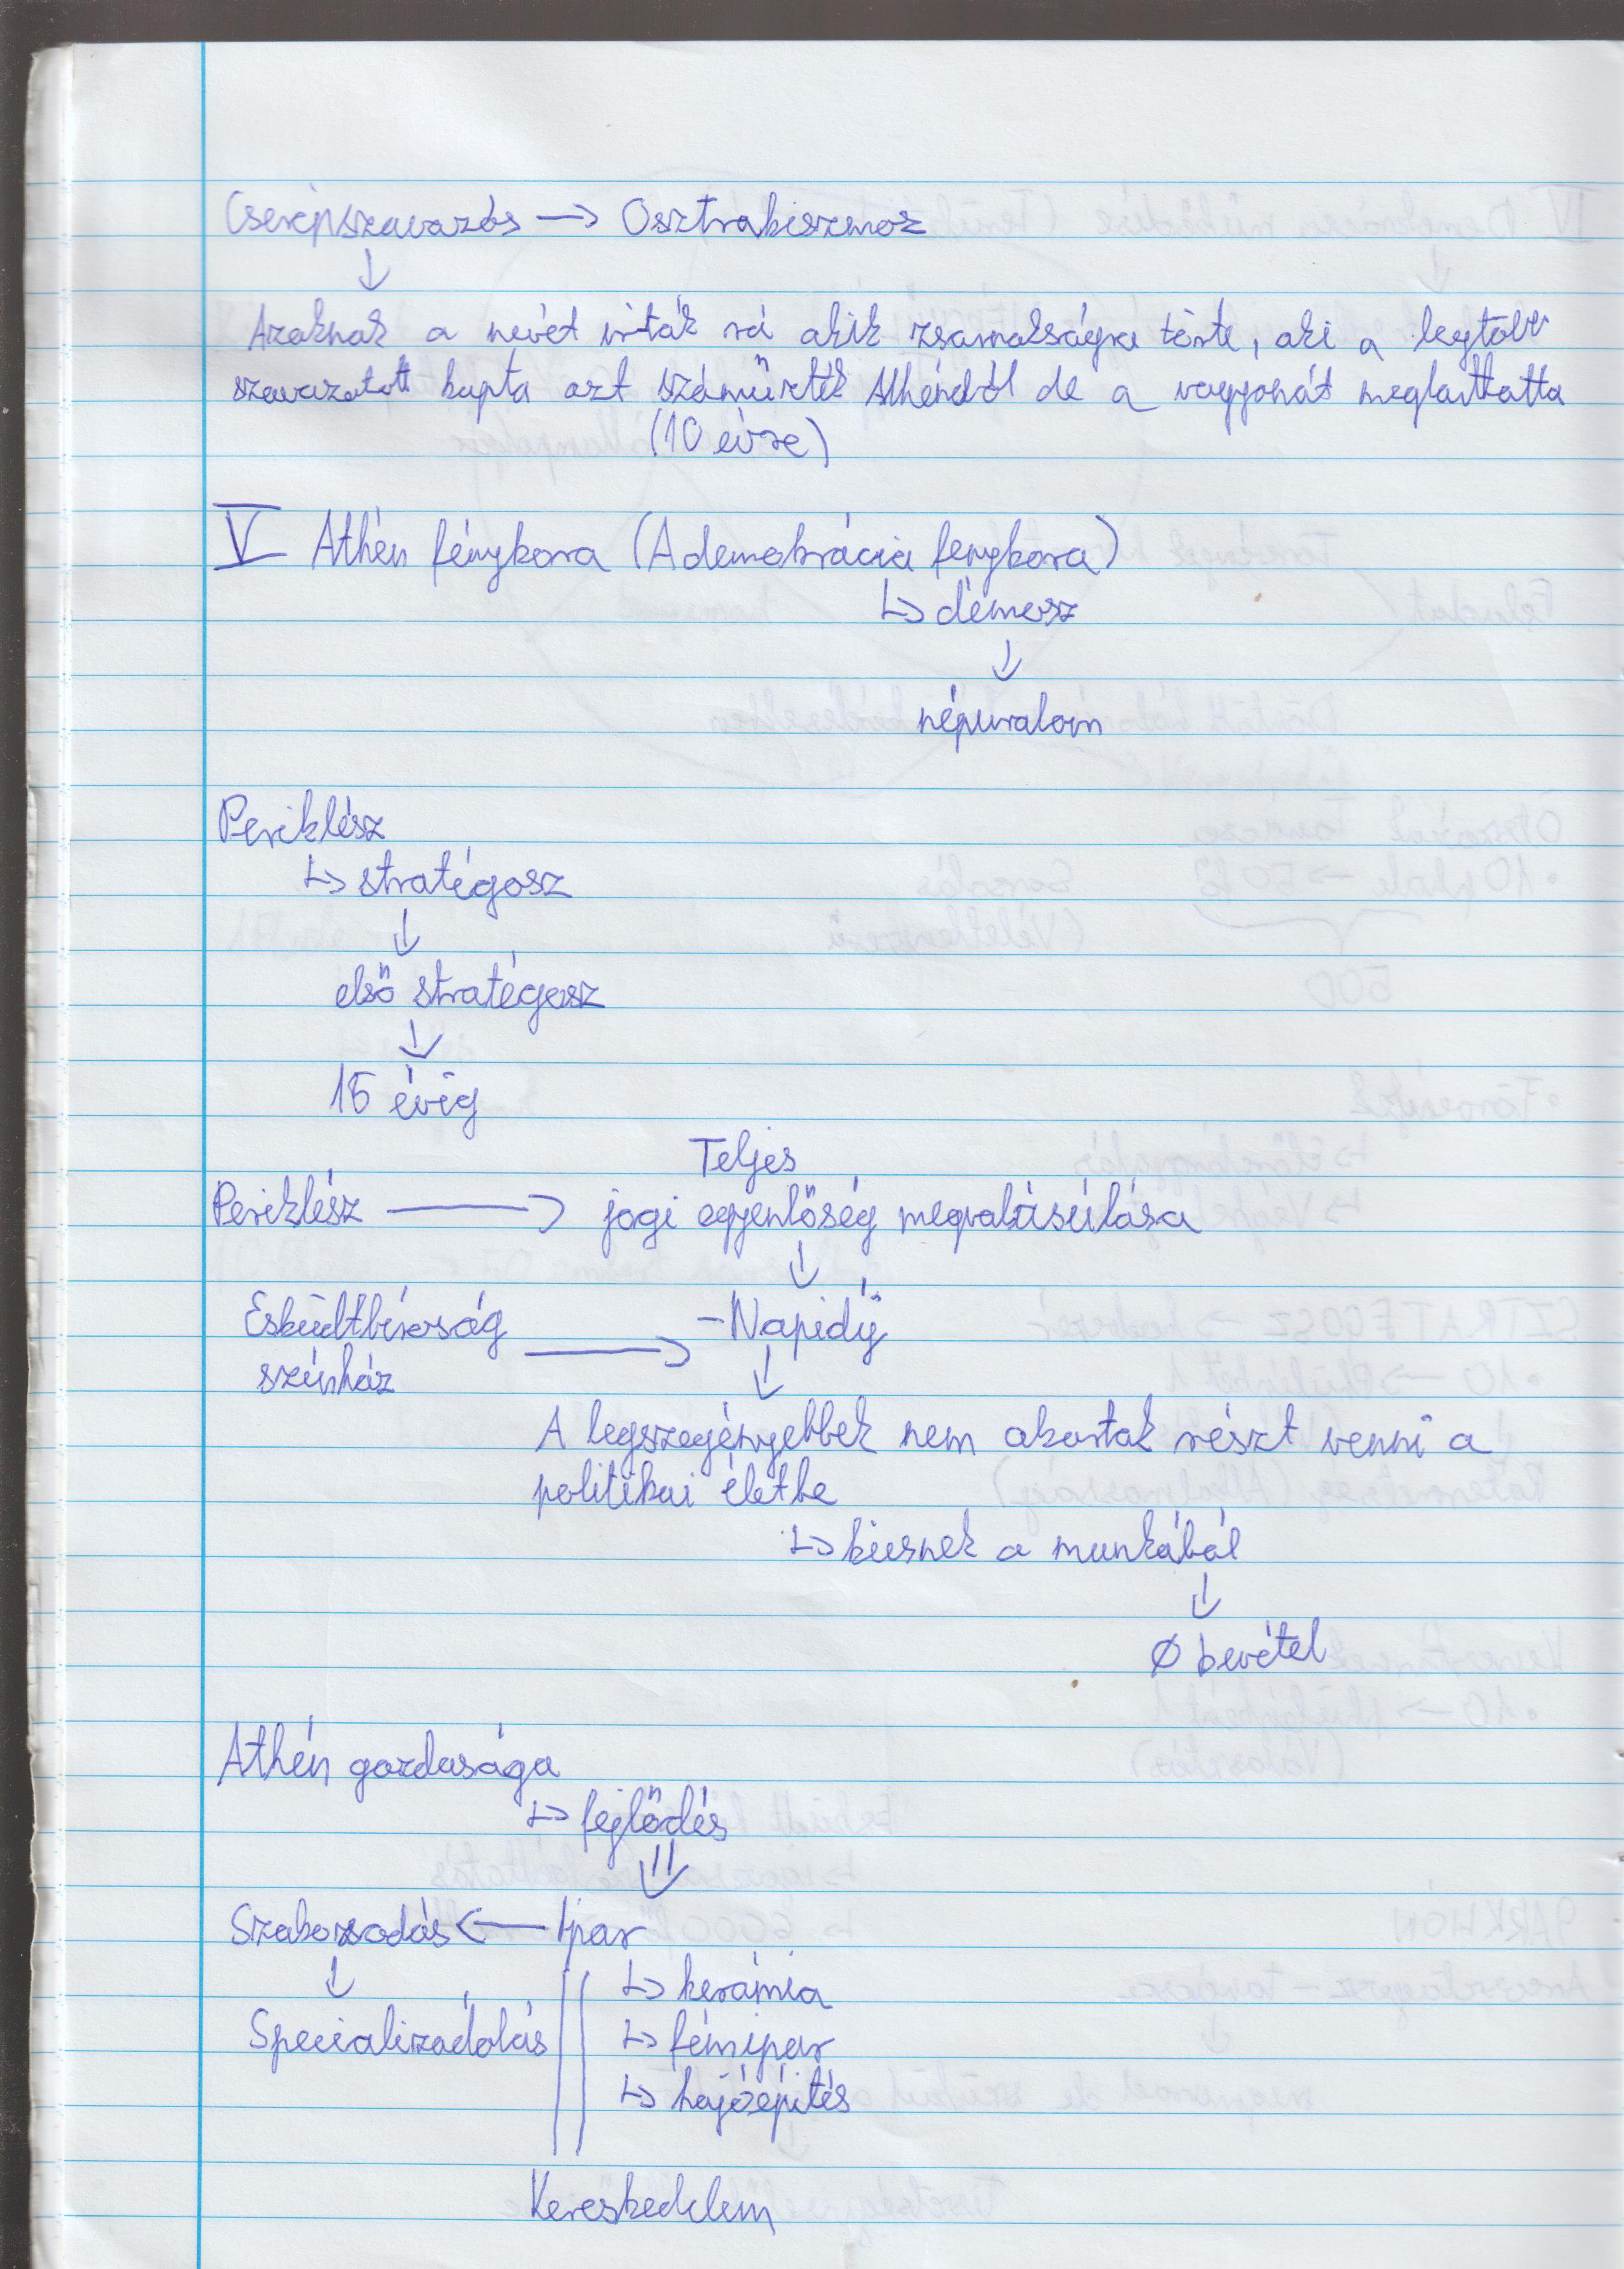 Cserépszavazás → Osztrakiszmosz
↓
Azaknak a nevét írták rá akik zsarnokságra törte, aki a legtöbb
szavazatott kapta azt száműzték Athénból de a vagyonát megtarthatta
(10 évre)
V Athén fénykora (A demokrácia fénykora)
↳ démosz
↓
népuralom
Periklész
↳ stratégosz
↓
első stratégosz
↓
15 évig
Teljes
Periklész → jogi egyenlőség megvalósúlása
↓
Esküdtbíróság → - Napidíj
színház
↓
A legszegényebbek nem akartak részt venni a
politikai életbe
↳ kiesnek a munkából
↓
Ø bevétel
Athén gazdasága
↳ fejlődés
⇓
Szakosodás ← Ipar
↓ ↳ kerámia
Specializádolás ↳ fémipar
↳ hajóépítés
Kereskedelem